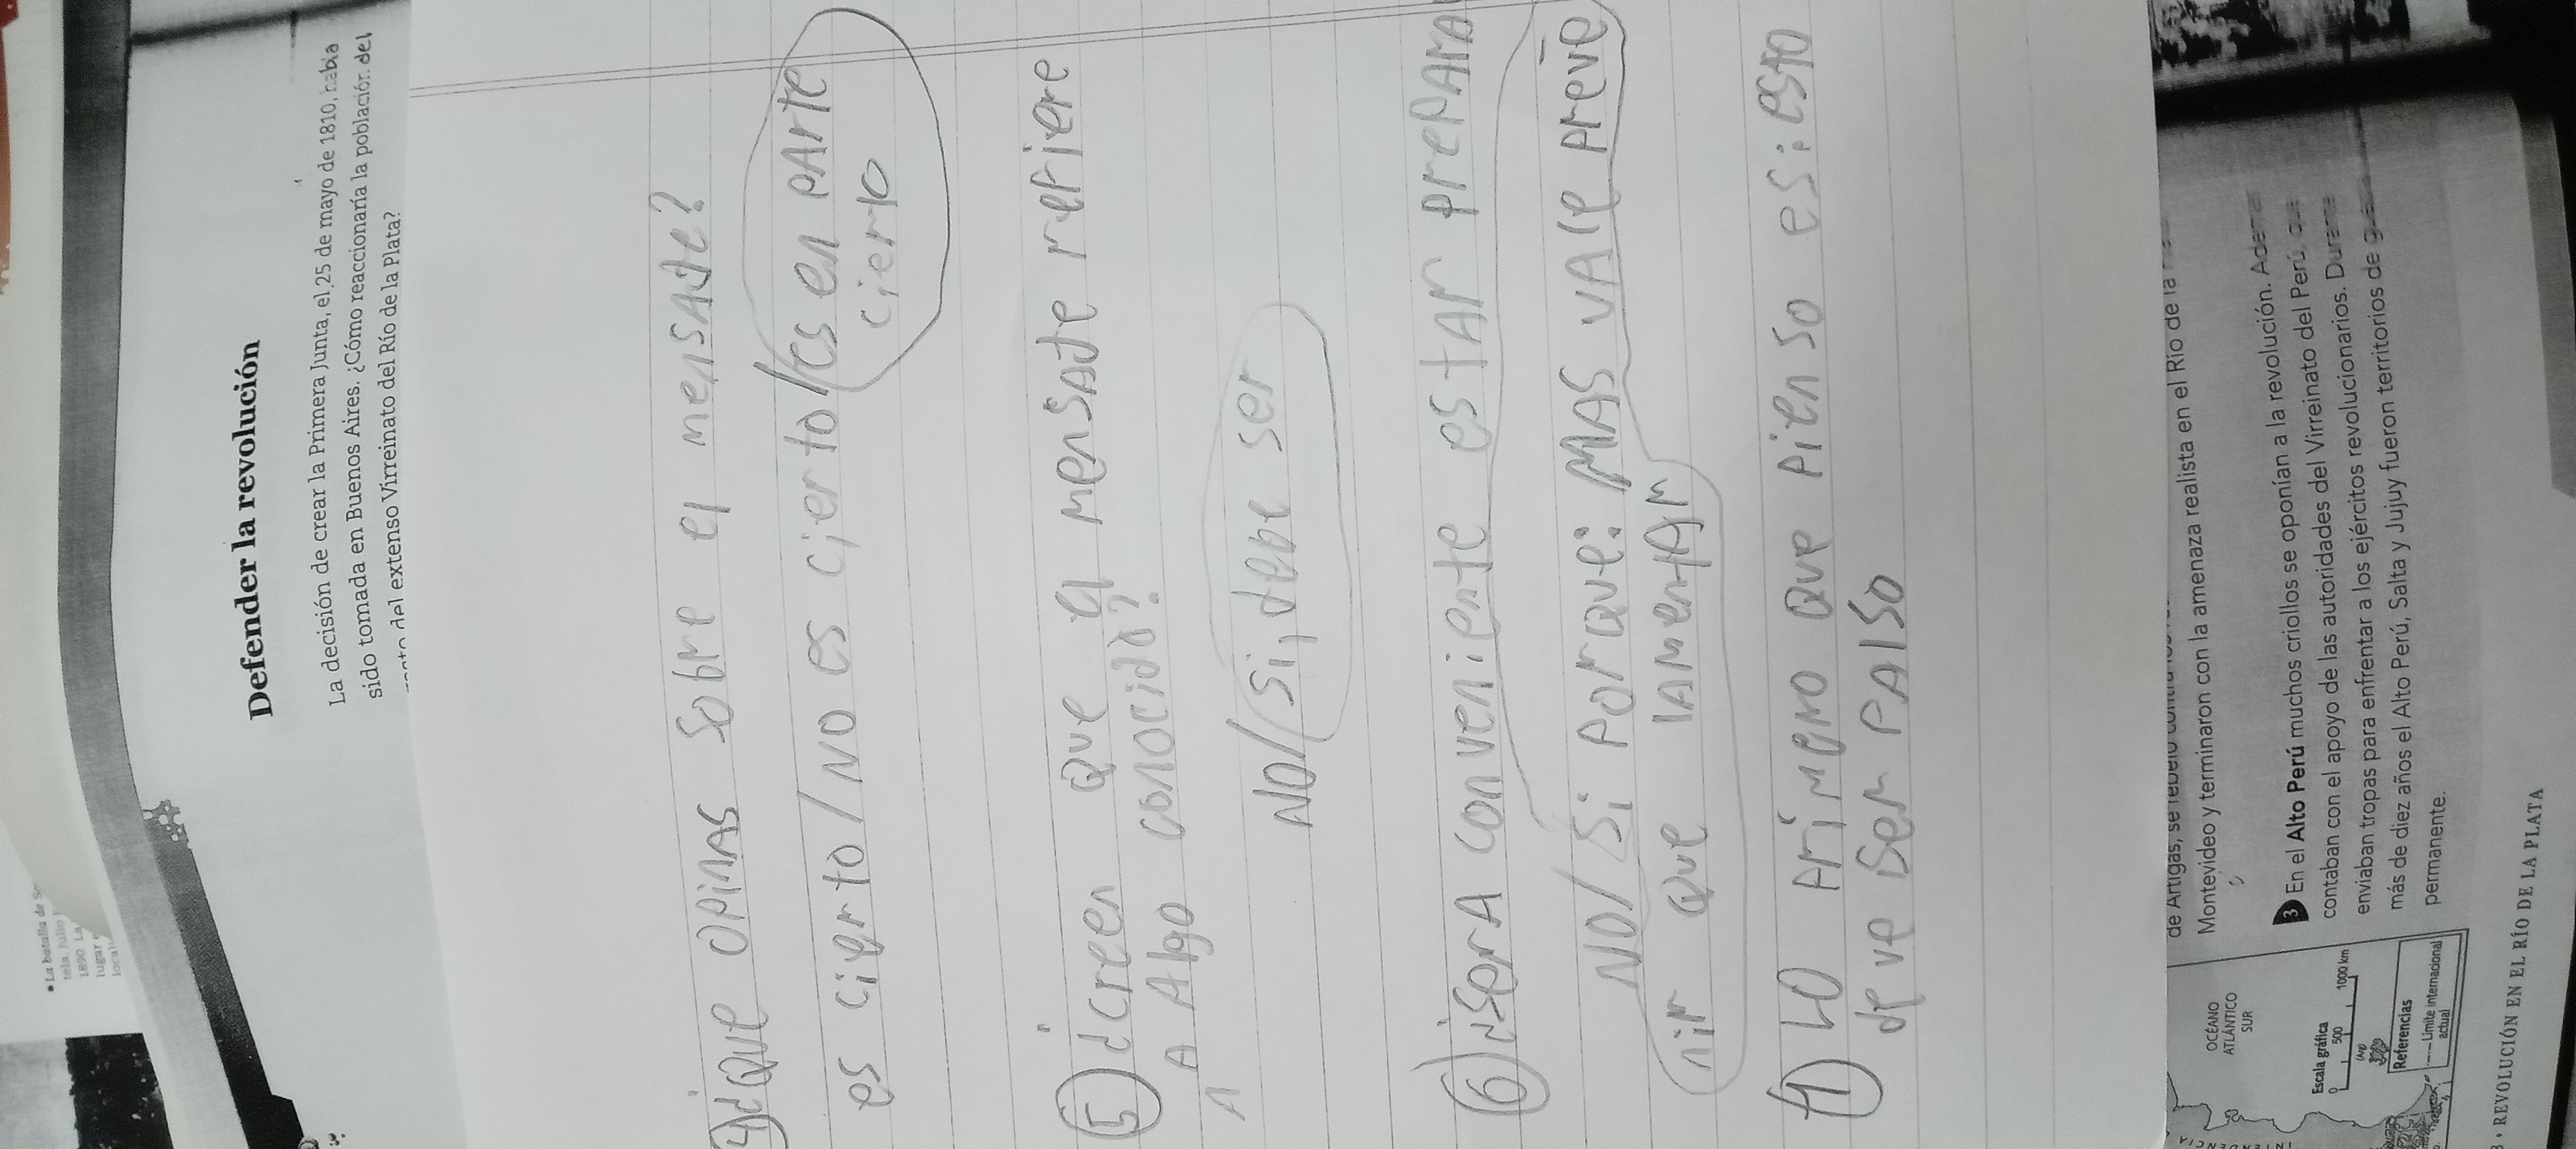 • La batalla de S
tela. Julio
1890. La
lugar
local
Defender la revolución
La decisión de crear la Primera Junta, el 25 de mayo de 1810, había
sido tomada en Buenos Aires. ¿Cómo reaccionaría la población del
del extenso Virreinato del Río de la Plata?
4) ¿QUE OPINAS SObre el mensaje?
es cierto/NO es cierto/es en pArte
cierto
5) ¿creen que el mensaje refiere
A Algo conocido?
NO/Si, debe ser
6) ¿SerA conveniente estAr prepArA
NO/Si porque: MAS VAle preve
nir que lAmentAr
1) LO Primero que Pienso es: esto
deve ser fAlso
de Artigas, se rebeló contra
Montevideo y terminaron con la amenaza realista en el Río de la
3 En el Alto Perú muchos criollos se oponían a la revolución. Adem
contaban con el apoyo de las autoridades del Virreinato del Perú, que
enviaban tropas para enfrentar a los ejércitos revolucionarios. Durante
más de diez años el Alto Perú, Salta y Jujuy fueron territorios de
permanente.
OCÉANO
ATLÁNTICO
SUR
Escala gráfica
0 500 1000 km
Referencias
Límite internacional
actual
3 • REVOLUCIÓN EN EL RÍO DE LA PLATA